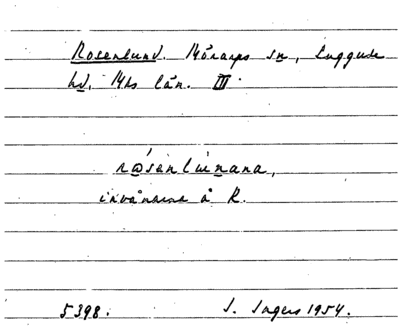 Rosenlund. Mörarps sn, Luggude
hd, Mhs län. III.
råsənlúnana,
invånarne å R.
5398. I. Ingers 1954.